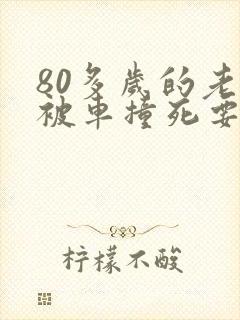 80多岁的老
被车撞死要
柠檬不酸